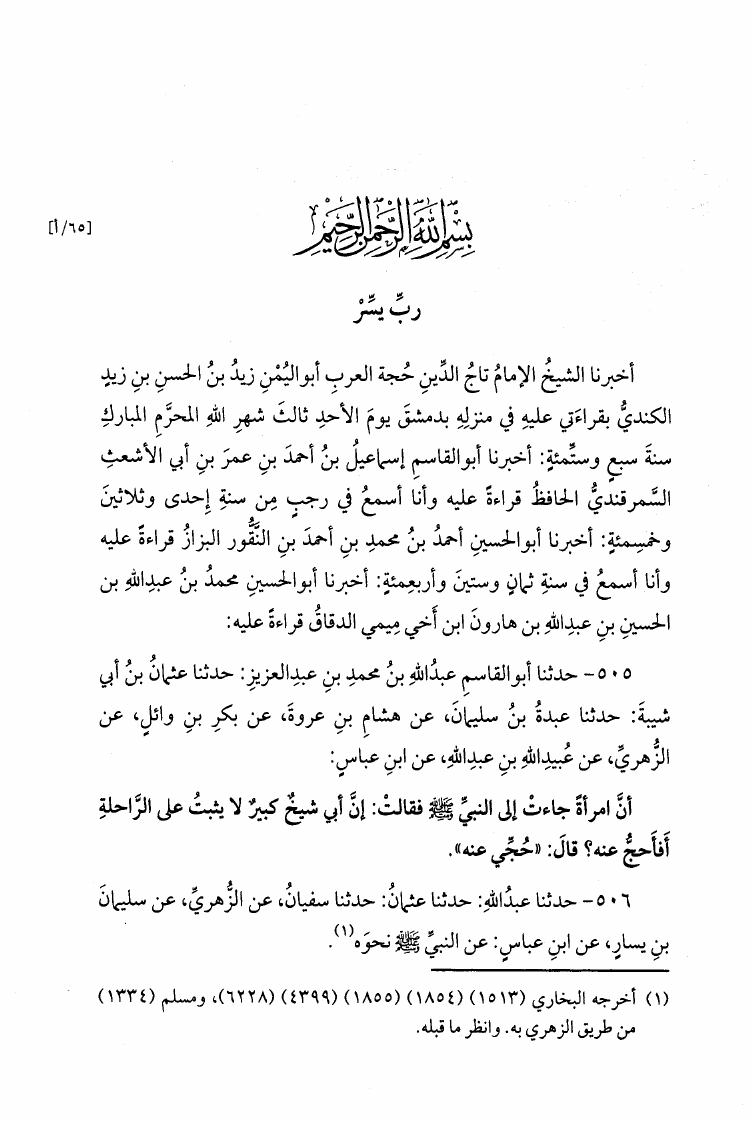 [٦٥/أ]
بِسْمِ اللهِ الرَّحْمنِ الرَّحِيمِ
ربِّ يسِّرْ
أخبرنا الشيخُ الإمامُ تاجُ الدِّينِ حُجة العربِ أبواليُمْنِ زيدُ بنُ الحسنِ بنِ زيدٍ
الكنديُّ بقراءَتي عليهِ في منزلِهِ بدمشقَ يومَ الأحدِ ثالثَ شهرِ اللهِ المحرَّمِ المباركِ
سنةَ سبعٍ وستِّمئةٍ: أخبرنا أبوالقاسمِ إسماعيلُ بنُ أحمدَ بنِ عمرَ بنِ أبي الأشعثِ
السَّمرقنديُّ الحافظُ قراءةً عليه وأنا أسمعُ في رجبٍ مِن سنةِ إحدى وثلاثينَ
وخمسِمئةٍ: أخبرنا أبوالحسينِ أحمدُ بنُ محمدِ بنِ أحمدَ بنِ النَّقُّور البزازُ قراءةً عليه
وأنا أسمعُ في سنةِ ثمانٍ وستينَ وأربعِمئةٍ: أخبرنا أبوالحسينِ محمدُ بنُ عبدِاللهِ بن
الحسينِ بنِ عبدِاللهِ بن هارونَ ابن أَخي مِيمي الدقاقُ قراءةً عليه:
٥٠٥- حدثنا أبوالقاسمِ عبدُاللهِ بنُ محمدِ بنِ عبدِالعزيزِ: حدثنا عثمانُ بنُ أبي
شيبةَ: حدثنا عبدةُ بنُ سليمانَ، عن هشامِ بنِ عروةَ، عن بكرِ بنِ وائلٍ، عن
الزُّهريِّ، عن عُبيدِاللهِ بنِ عبدِاللهِ، عن ابنِ عباسٍ:
أنَّ امرأةً جاءتْ إلى النبيِّ ﷺ فقالتْ: إنَّ أبي شيخٌ كبيرٌ لا يثبتُ على الرَّاحلةِ
أَفأَحجُّ عنه؟ قالَ: «حُجِّي عنه».
٥٠٦- حدثنا عبدُاللهِ: حدثنا عثمانُ: حدثنا سفيانُ، عن الزُّهريِّ، عن سليمانَ
بنِ يسارٍ، عن ابنِ عباسٍ: عن النبيِّ ﷺ نحوَه(١).
(١) أخرجه البخاري (١٥١٣) (١٨٥٤) (١٨٥٥) (٤٣٩٩) (٦٢٢٨)، ومسلم (١٣٣٤)
من طريق الزهري به. وانظر ما قبله.